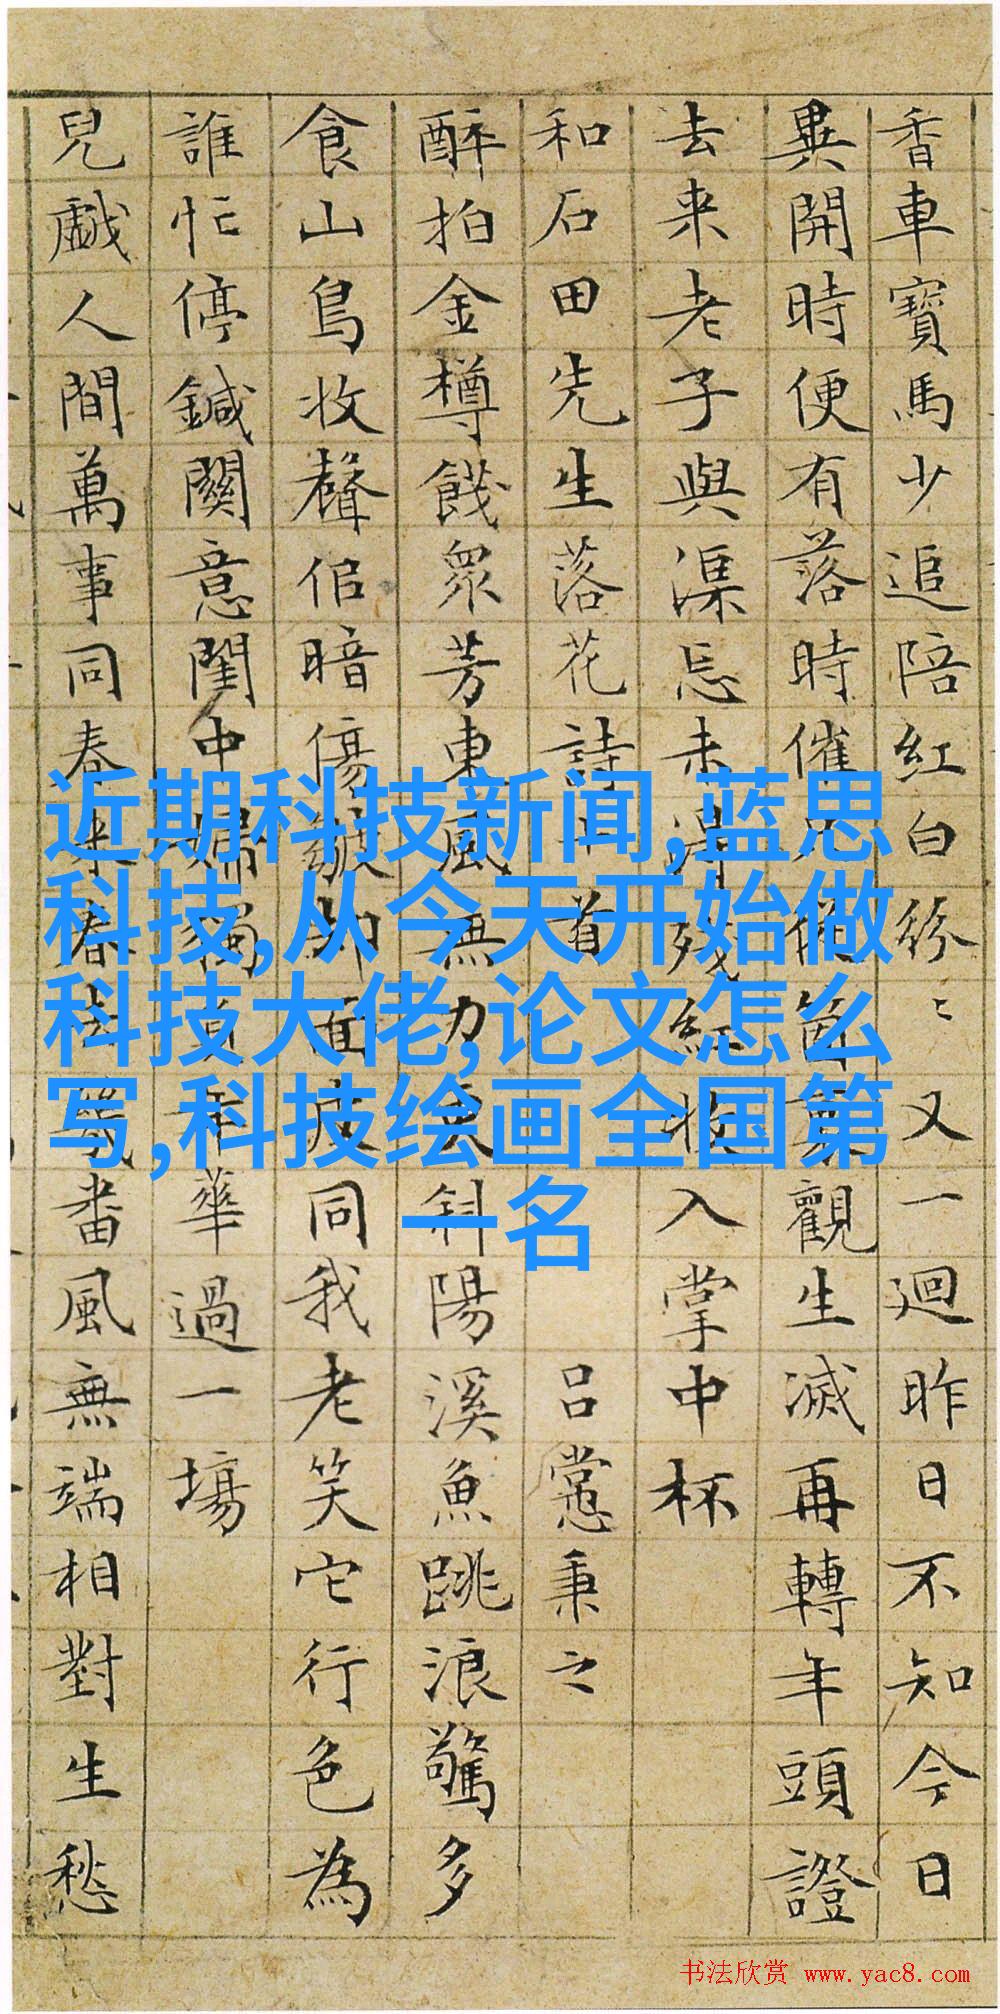 香車寶馬少追陪紅白紛〻又一迴昨日不知今日
異開時便有落時催只箇裏觀生滅再轉年頭證
去来老子與渠忘未得殘紅收入掌中杯
和石田先生落花詩十首 呂㦂秉之
醉拍金樽餞眾芳東風無力更斜陽溪魚跳浪驚多
食山鳥收聲佀暗傷皺却面皮同我老笑它行色為
誰忙停鍼關意閨中婦獨負年華過一場
兒戲人間萬事同春来春去幾番風無端相對生愁
近期科技新闻,蓝思
科技,从今天开始做
科技大佬,论文怎么
写,科技绘画全国第
一名
书法欣赏 www.yac8.com